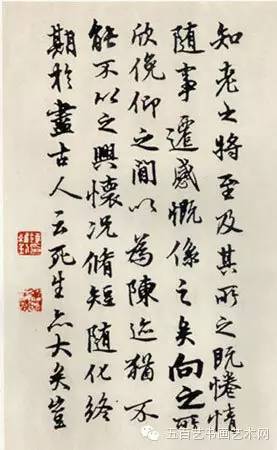 知老之將至及其所之既惓情
随事遷感慨係之矣向之所
欣俛仰之間以為陳迹猶不
能不以之興懷况脩短随化終
期於盡古人云死生亦大矣豈
五百艺书画艺术网